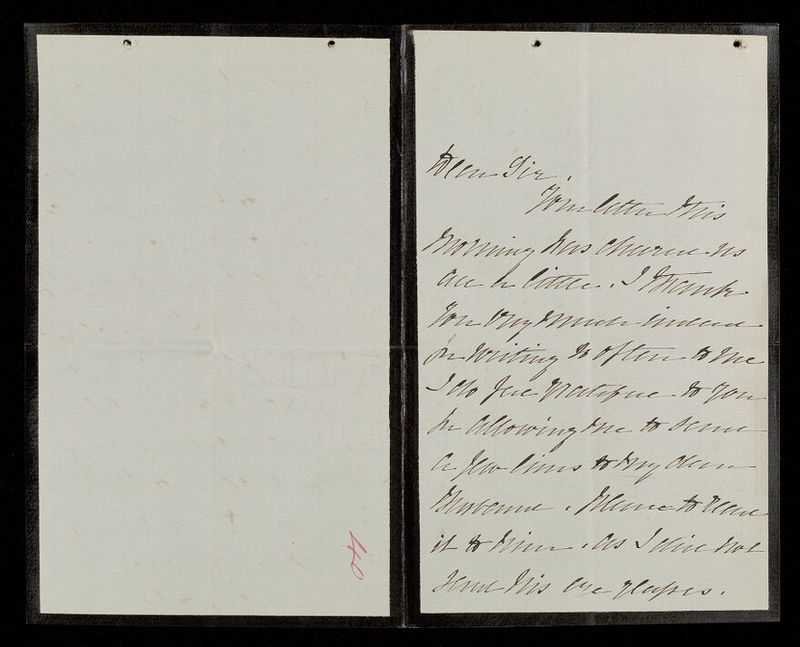 Dear Sir.
Your letter this
Morning has cheered us
all a little. I thank
you very much indeed
for writing so often to me
I do feel grateful to you
for allowing me to send
a few lines to my dear
Husband. Please to read
it to him. as I did not
send his eye glasses.
40